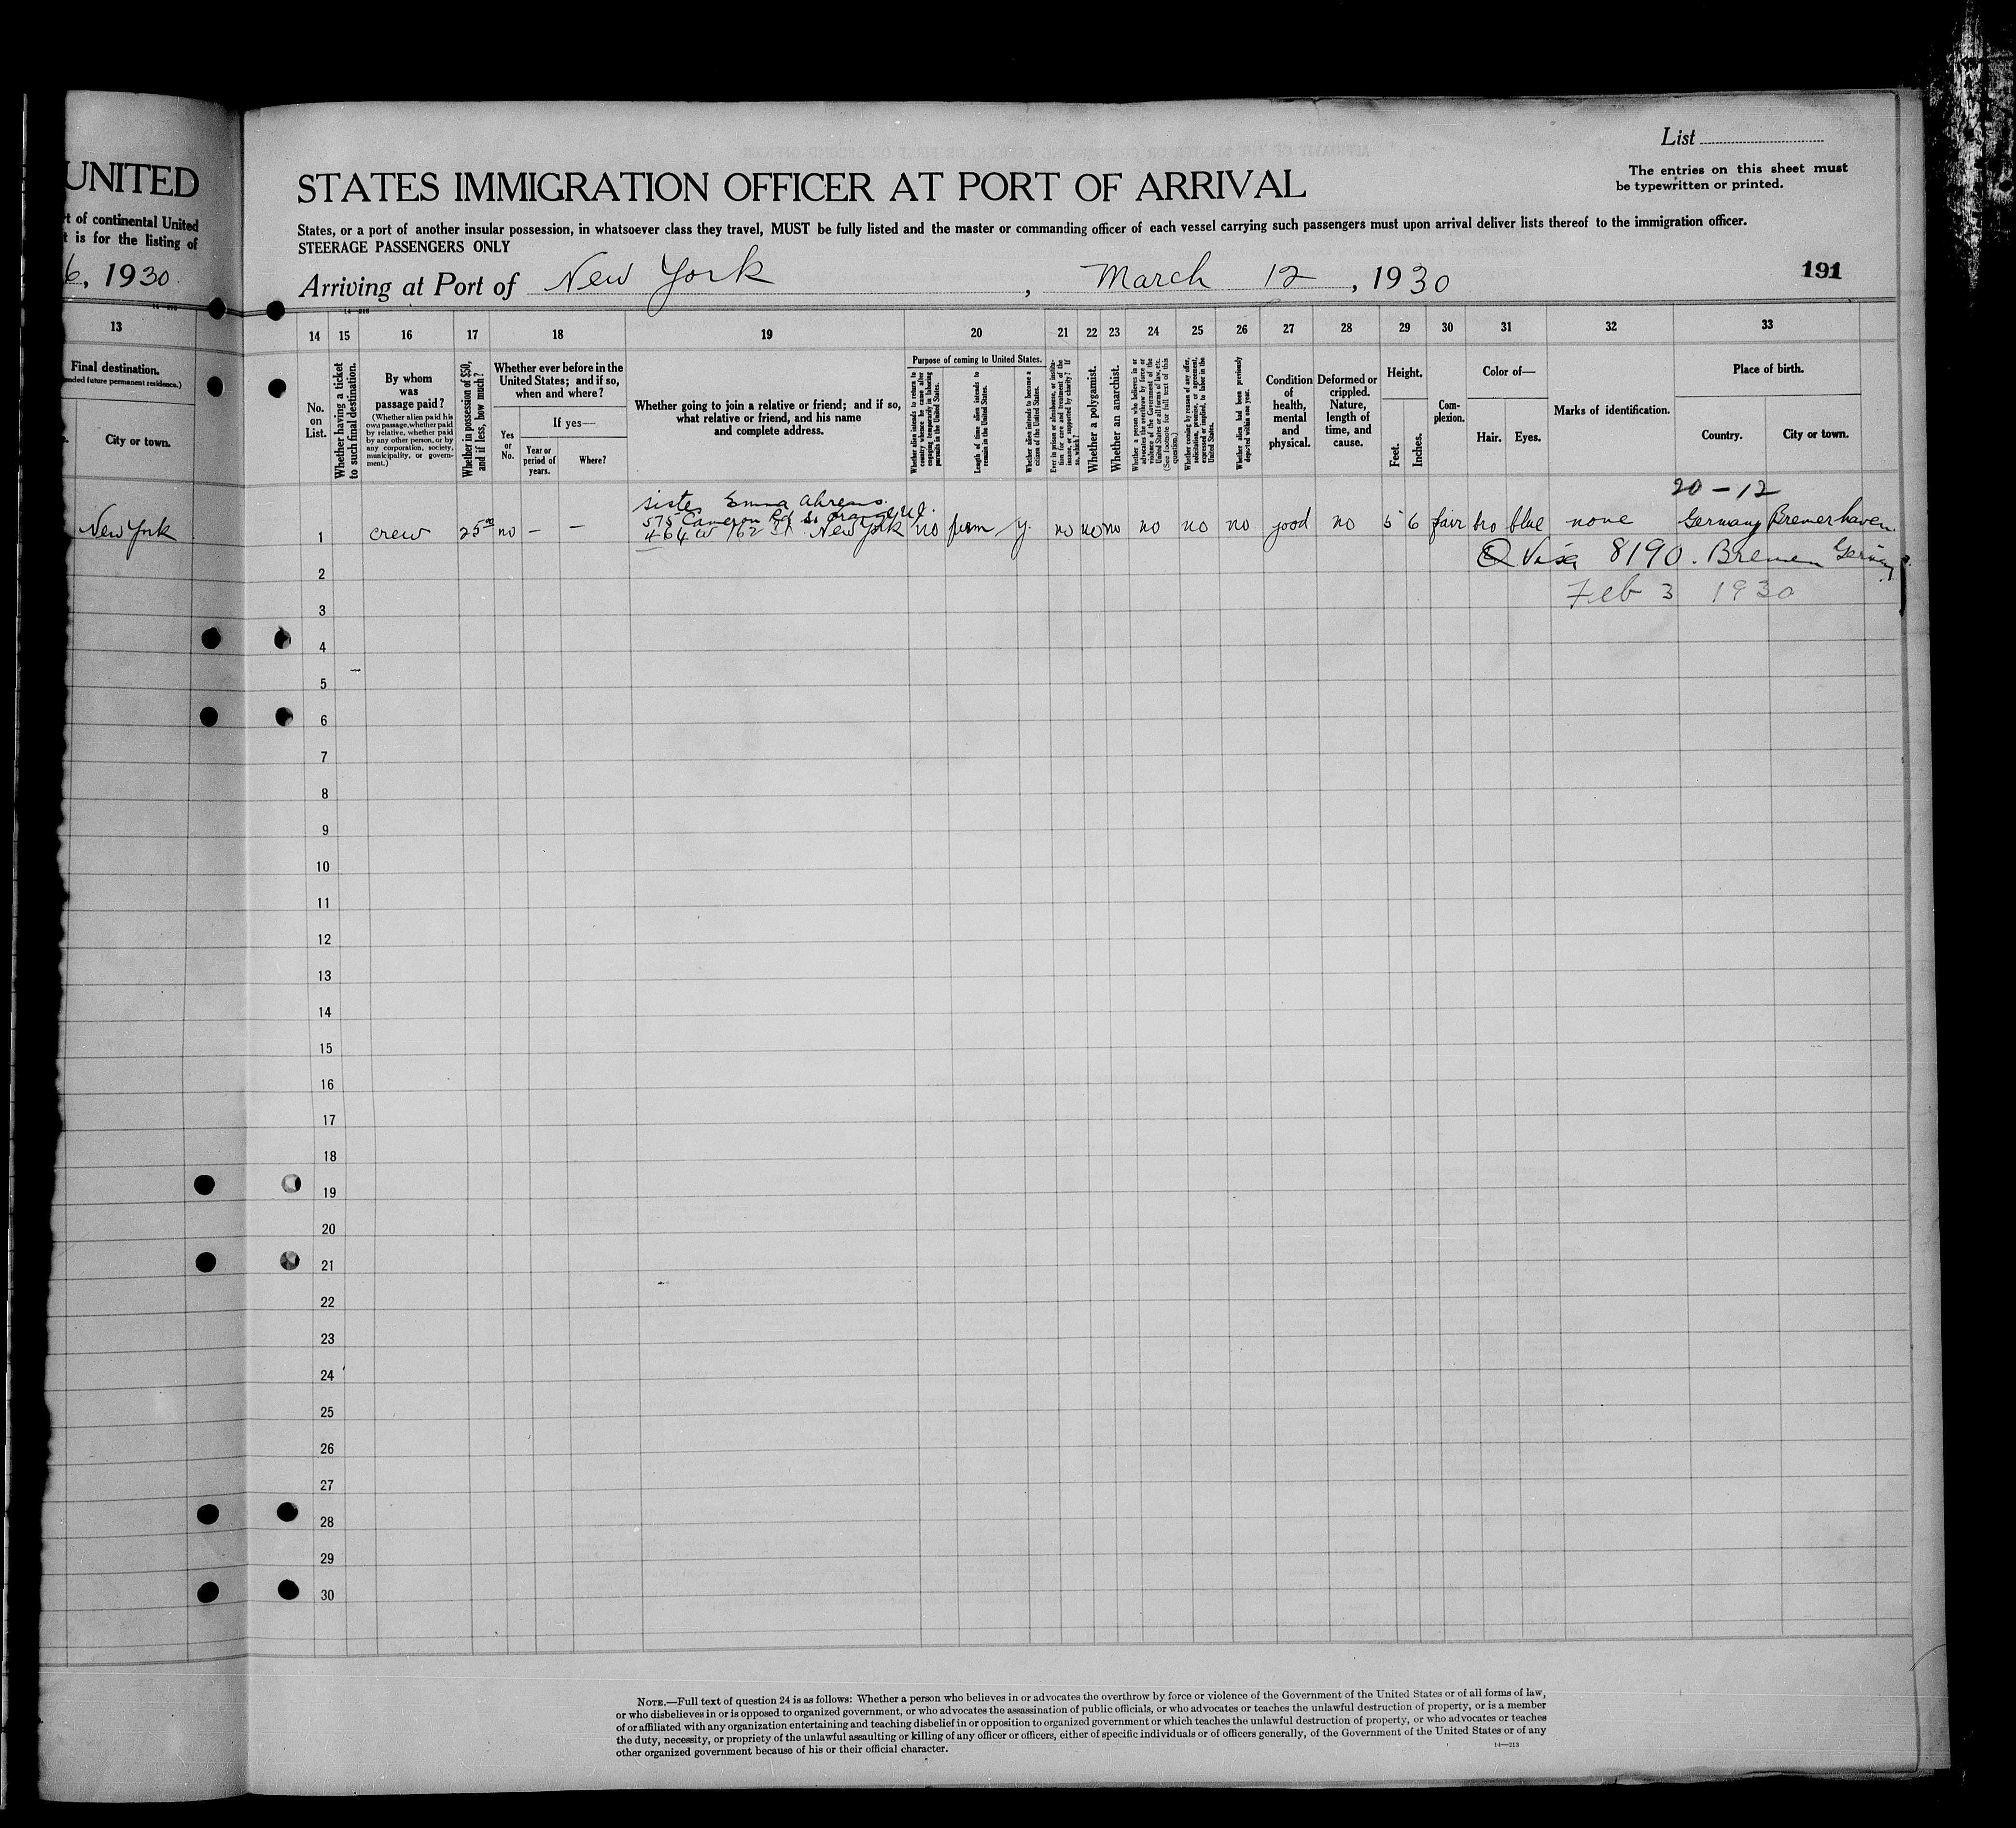 UNITED
t of continental United
t is for the listing of
6, 1930
13
Final destination.
ended future permanent residence.)
City or town.
New York
List
The entries on this sheet must
be typewritten or printed.
STATES IMMIGRATION OFFICER AT PORT OF ARRIVAL
States, or a port of another insular possession, in whatsoever class they travel, MUST be fully listed and the master or commanding officer of each vessel carrying such passengers must upon arrival deliver lists thereof to the immigration officer.
STEERAGE PASSENGERS ONLY
Arriving at Port of New York, March 12, 1930
191
14 15 16 17 18 19 20 21 22 23 24 25 26 27 28 29 30 31 32 33
No. on List.
Whether having a ticket to such final destination.
By whom was passage paid?
(Whether alien paid his own passage, whether paid by relative, whether paid by any other person, or by any corporation, society, municipality, or government.)
Whether in possession of $50, and if less, how much?
Whether ever before in the United States; and if so, when and where?
Yes or No.
If yes—
Year or period of years.
Where?
Whether going to join a relative or friend; and if so, what relative or friend, and his name and complete address.
Purpose of coming to United States.
Whether alien intends to return to country whence he came after engaging temporarily in laboring pursuits in the United States.
Length of time alien intends to remain in the United States.
Whether alien intends to become a citizen of the United States.
Ever in prison or almshouse, or institution for care and treatment of the insane, or supported by charity? If so, which?
Whether a polygamist.
Whether an anarchist.
Whether a person who believes in or advocates the overthrow by force or violence of the Government of the United States or all forms of law, etc. (See footnote for full text of this question.)
Whether coming by reason of any offer, solicitation, promise, or agreement, expressed or implied, to labor in the United States.
Whether alien had been previously deported within one year.
Condition of health, mental and physical.
Deformed or crippled. Nature, length of time, and cause.
Height.
Feet. Inches.
Complexion.
Color of—
Hair. Eyes.
Marks of identification.
Place of birth.
Country. City or town.
20-12
sister Emma Ahrens.
575 Cameron Rd So Orange
1 crew 25 no - - 464 W 162 St. New York no perm y. no no no no no no good no 5 6 fair bro blue none Germany Bremerhaven.
Q Visa 8190. Bremen Germany
2
Feb 3 1930
3
4
5
6
7
8
9
10
11
12
13
14
15
16
17
18
19
20
21
22
23
24
25
26
27
28
29
30
NOTE.—Full text of question 24 is as follows: Whether a person who believes in or advocates the overthrow by force or violence of the Government of the United States or of all forms of law,
or who disbelieves in or is opposed to organized government, or who advocates the assassination of public officials, or who advocates or teaches the unlawful destruction of property, or is a member
of or affiliated with any organization entertaining and teaching disbelief in or opposition to organized government or which teaches the unlawful destruction of property, or who advocates or teaches
the duty, necessity, or propriety of the unlawful assaulting or killing of any officer or officers, either of specific individuals or of officers generally, of the Government of the United States or of any
other organized government because of his or their official character.
14—213